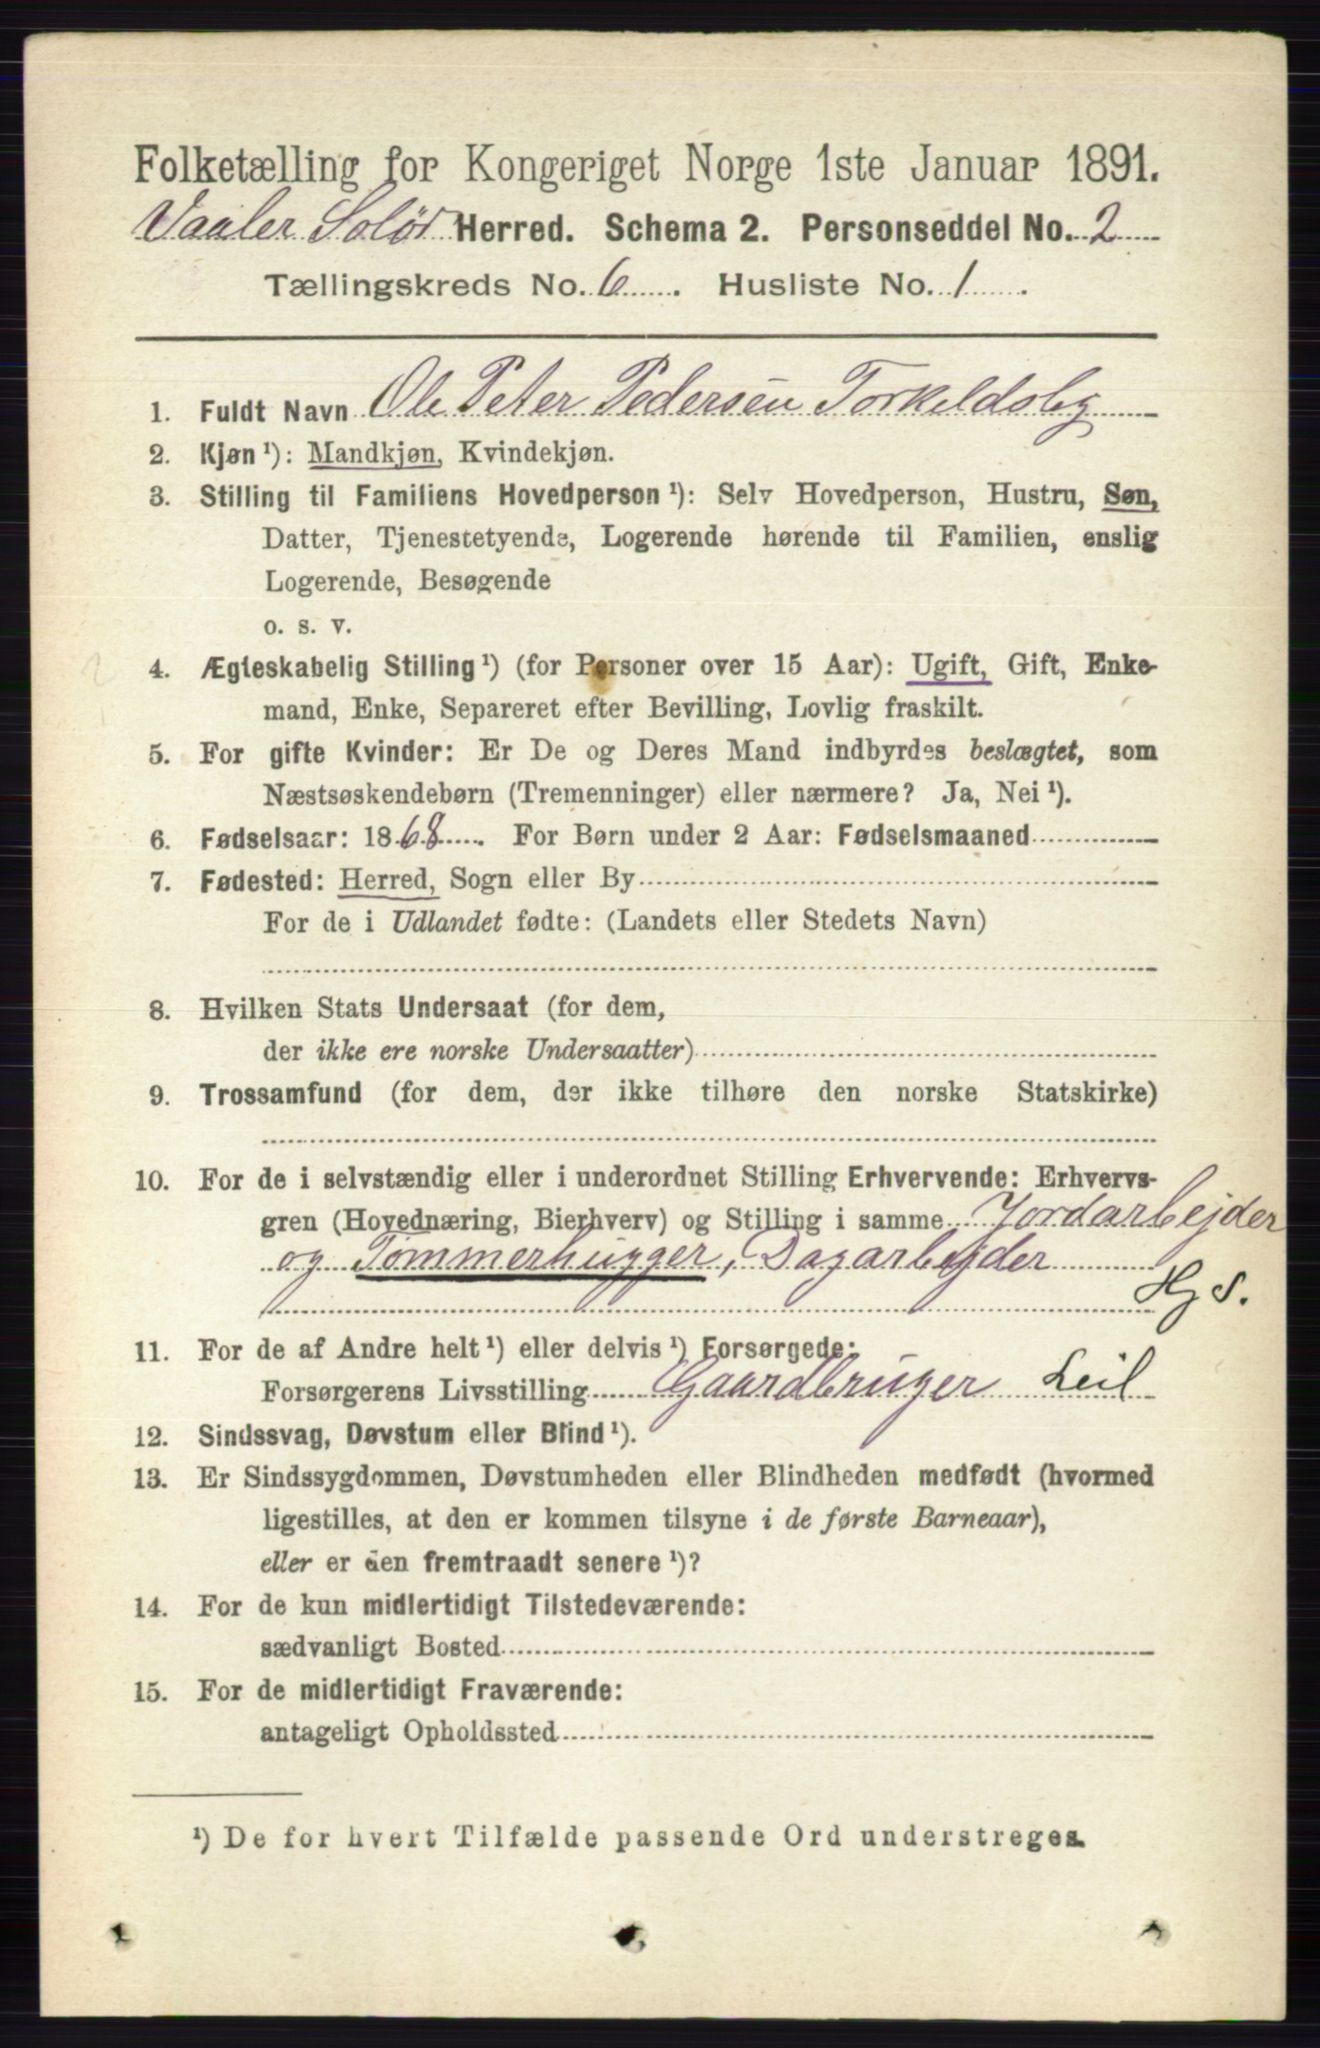 Folketælling for Kongeriget Norge 1ste Januar 1891.
Vaaler Solør Herred. Schema 2. Personseddel No. 2
Tællingskreds No. 6. Husliste No. 1.
1. Fuldt Navn Ole Peter Pedersen Torkeldsby
2. Kjøn¹): Mandkjøn, Kvindekjøn.
3. Stilling til Familiens Hovedperson¹): Selv Hovedperson, Hustru, Søn,
Datter, Tjenestetyende, Logerende hørende til Familien, enslig
Logerende, Besøgende
o. s. v.
4. Ægteskabelig Stilling¹) (for Personer over 15 Aar): Ugift, Gift, Enke-
mand, Enke, Separeret efter Bevilling, Lovlig fraskilt.
5. For gifte Kvinder: Er De og Deres Mand indbyrdes beslægtet, som
Næstsøskendebørn (Tremenninger) eller nærmere? Ja, Nei¹).
6. Fødselsaar: 1868. For Børn under 2 Aar: Fødselsmaaned
7. Fødested: Herred, Sogn eller By
For de i Udlandet fødte: (Landets eller Stedets Navn)
8. Hvilken Stats Undersaat (for dem,
der ikke ere norske Undersaatter)
9. Trossamfund (for dem, der ikke tilhøre den norske Statskirke)
10. For de i selvstændig eller i underordnet Stilling Erhvervende: Erhvervs-
gren (Hovednæring, Bierhverv) og Stilling i samme Jordarbejder
og Tømmerhugger, Dagarbejder
Hj S.
11. For de af Andre helt¹) eller delvis¹) Forsørgede:
Forsørgerens Livsstilling Gaardbruger Leil
12. Sindssvag, Døvstum eller Blind¹).
13. Er Sindssygdommen, Døvstumheden eller Blindheden medfødt (hvormed
ligestilles, at den er kommen tilsyne i de første Barneaar),
eller er den fremtraadt senere¹)?
14. For de kun midlertidigt Tilstedeværende:
sædvanligt Bosted
15. For de midlertidigt Fraværende:
antageligt Opholdssted
¹) De for hvert Tilfælde passende Ord understreges.